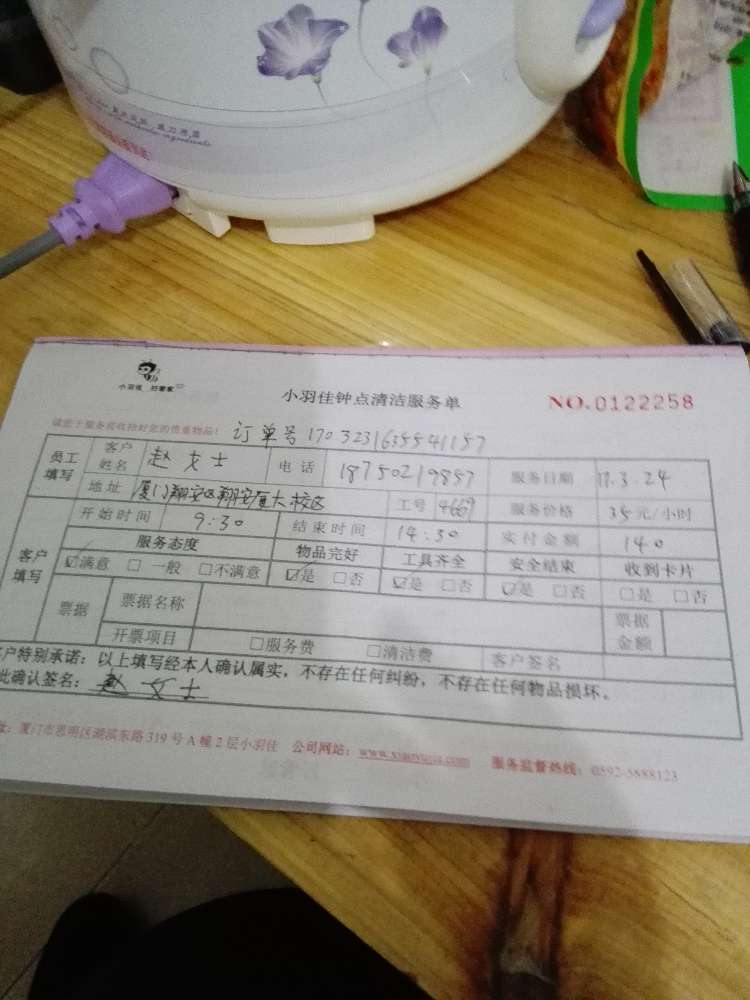 小羽佳 好管家
小羽佳钟点清洁服务单
NO.0122258
请您于服务前收拾好您的贵重物品: 订单号 1703231635541157
员工填写 客户姓名 赵女士 电话 18750219857 服务日期 17.3.24
地址 厦门翔安区翔安厦大校区 工号 4669 服务价格 35元/小时
客户填写 开始时间 9:30 结束时间 14:30 实付金额 140
服务态度 物品完好 工具齐全 安全结束 收到卡片
☑满意 □一般 □不满意 ☑是 □否 ☑是 □否 ☑是 □否 □是 □否
票据 票据名称 票据金额
开票项目 □服务费 □清洁费 客户签名
客户特别承诺:以上填写经本人确认属实,不存在任何纠纷,不存在任何物品损坏。
此确认签名: 赵女士
厦门市思明区湖滨东路319号A幢2层小羽佳 公司网站:www.xiaoyujia.com 服务监督热线:0592-5888123